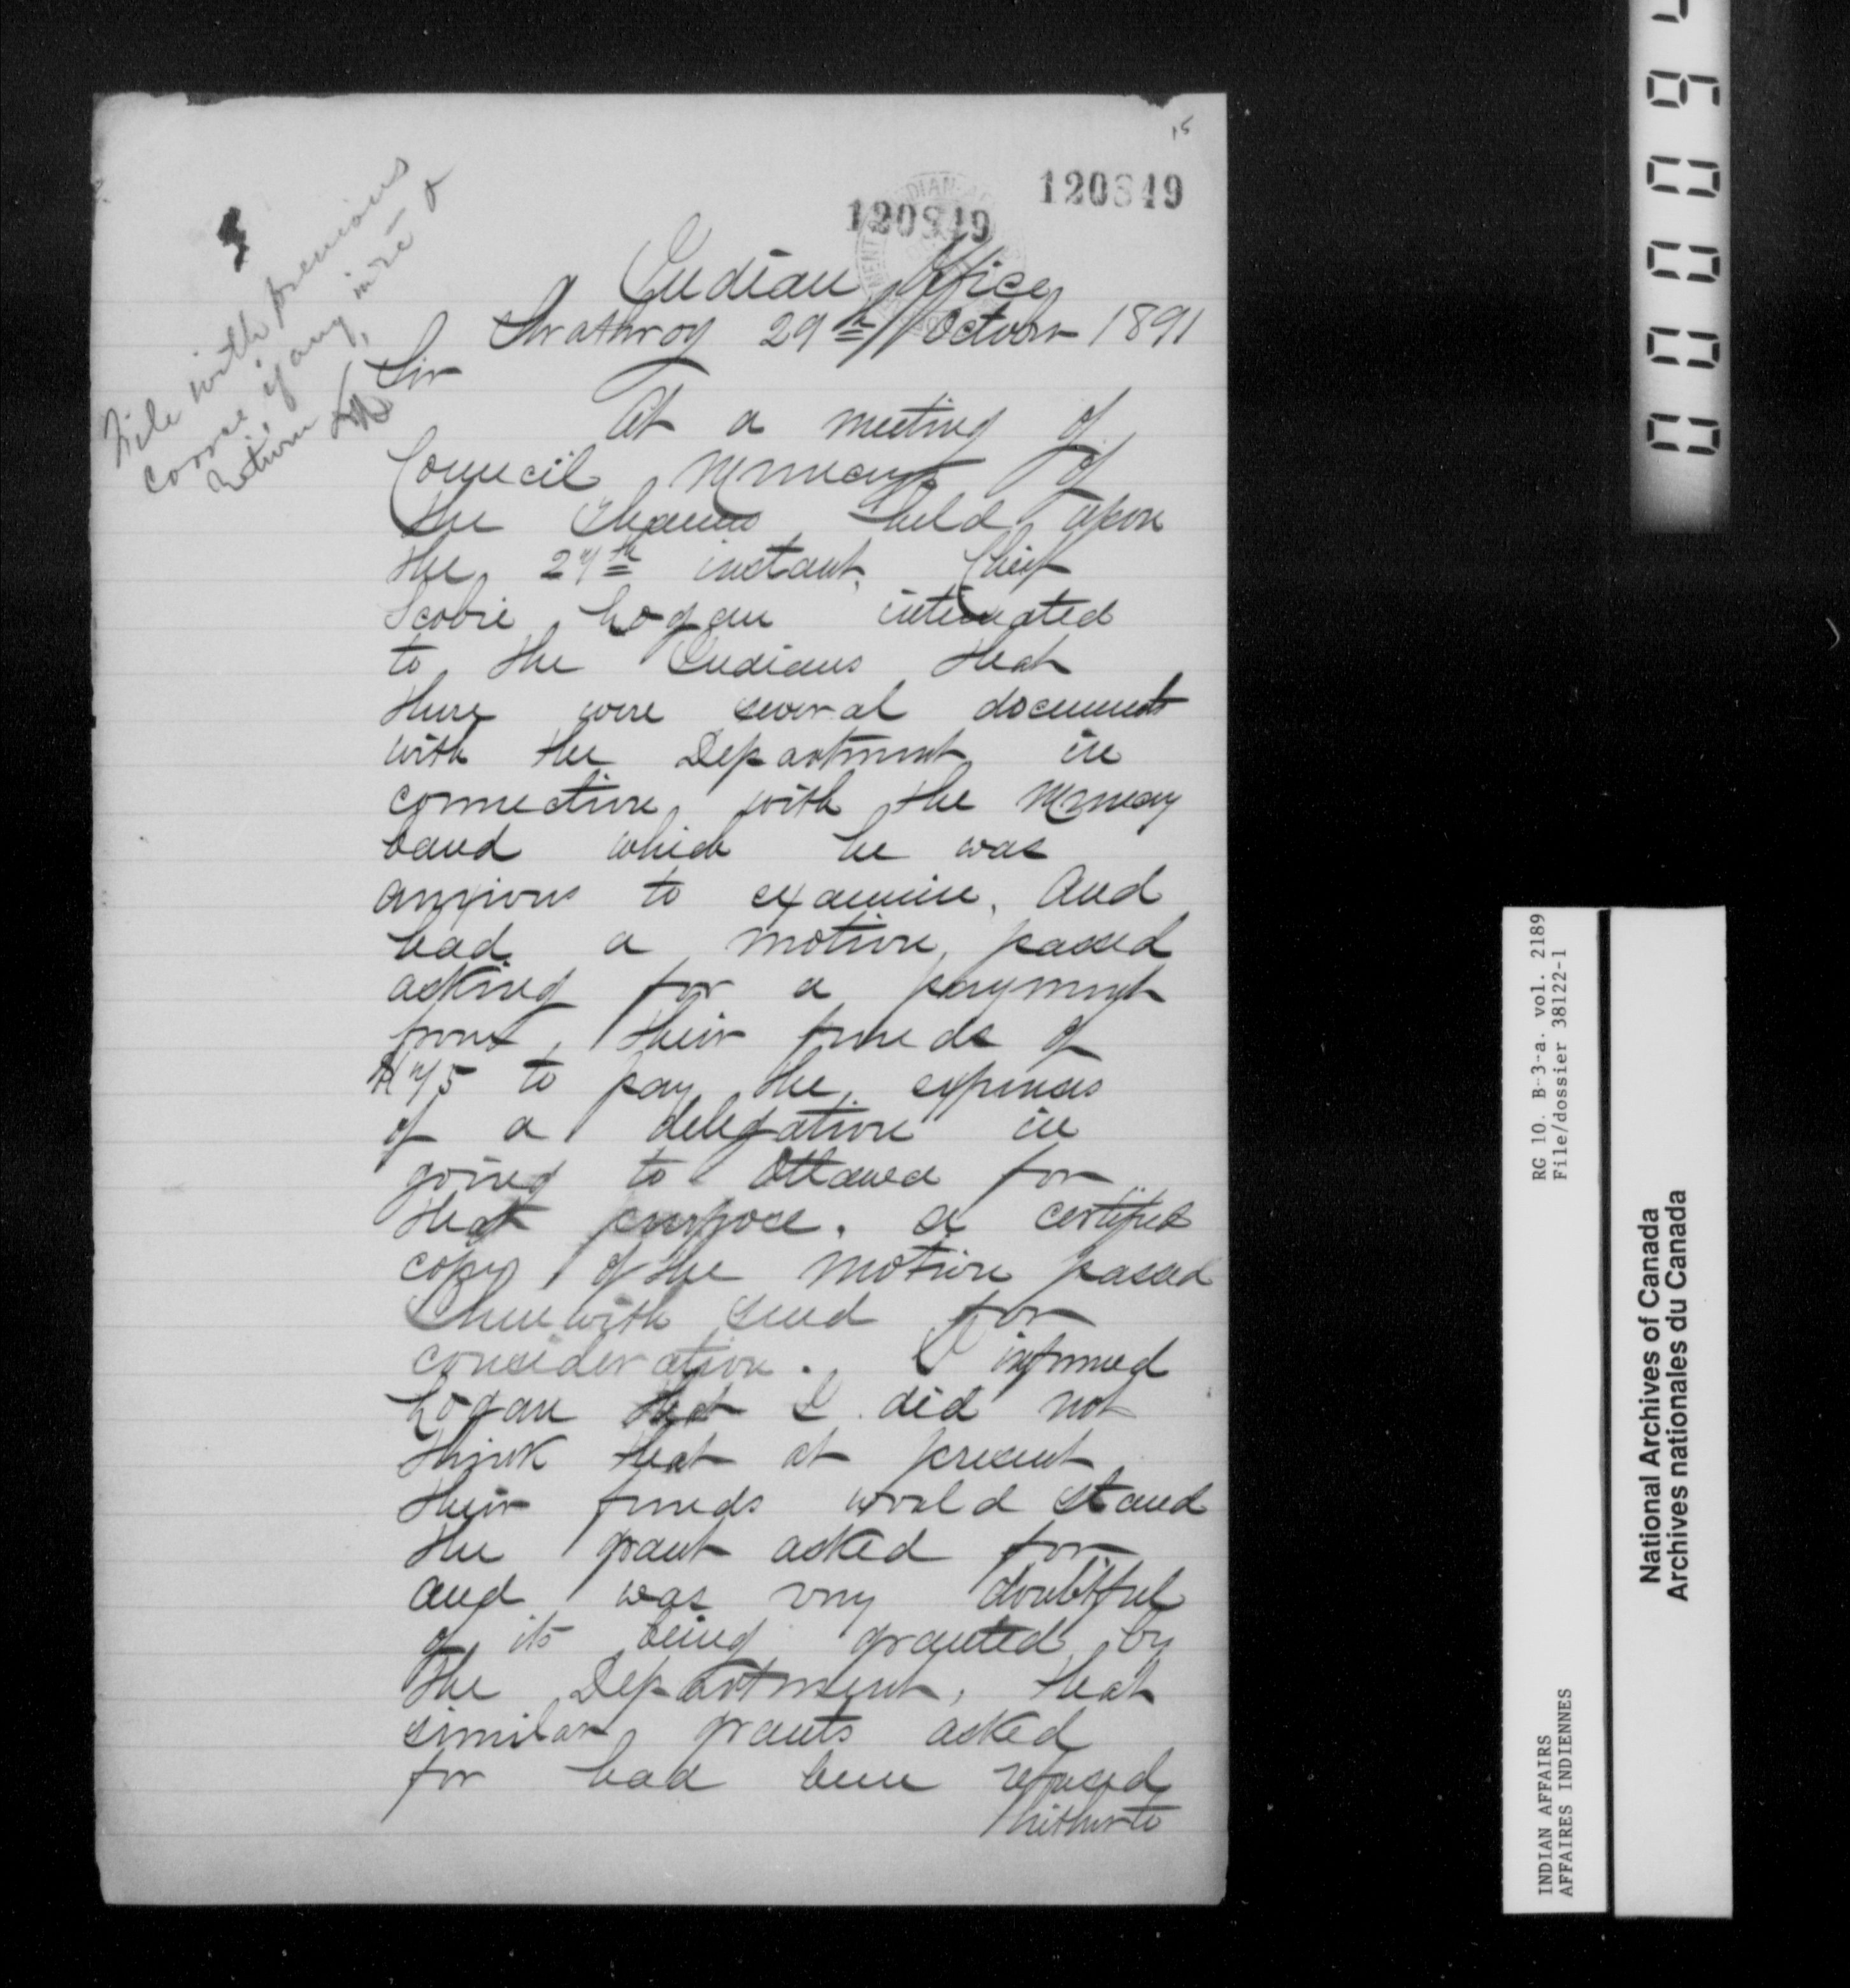 15
120849
120849
File with previous
corrce, if any, in re &
return
Indian Office
Strathroy 29th October 1891
Sir
At a meeting of
Council Munceys of
the Thames held upon
the 27th instant, Chief
Scobie Logan intimated
to the Indians that
there were several documents
with the Department in
connection with the Muncey
band which he was
anxious to examine, and
had a motion passed
asking for a payment
from their funds of
$75 to pay the expenses
of a delegation in
going to Ottawa for
that purpose. a certified
copy of the motion passed
I herewith send for
consideration. I informed
Logan that I did not
think that at present
their funds would stand
the grant asked for
and was very doubtful
of its being granted by
the Department, that
similar grants asked
for had been refused
hitherto
RG 10. B-3-a. vol. 2189
File/dossier 38122-1
INDIAN AFFAIRS
AFFAIRES INDIENNES
National Archives of Canada
Archives nationales du Canada